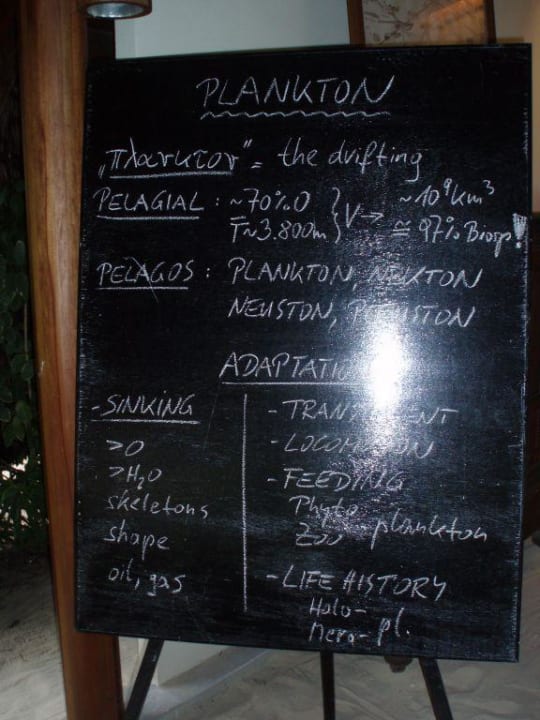 PLANKTON
„πλανκτον" = the drifting
PELAGIAL : ~70% O } V → ~10⁹ km³
T~3.800m } ≅ 97% Biosp!
PELAGOS : PLANKTON, NEKTON
NEUSTON, PLEUSTON
ADAPTATION
- SINKING
>O
>H₂O
skeletons
shape
oil, gas
- TRANSPARENT
- LOCOMOTION
- FEEDING
Phyto
Zoo - plankton
- LIFE HISTORY
Holo-
Mero- pl.